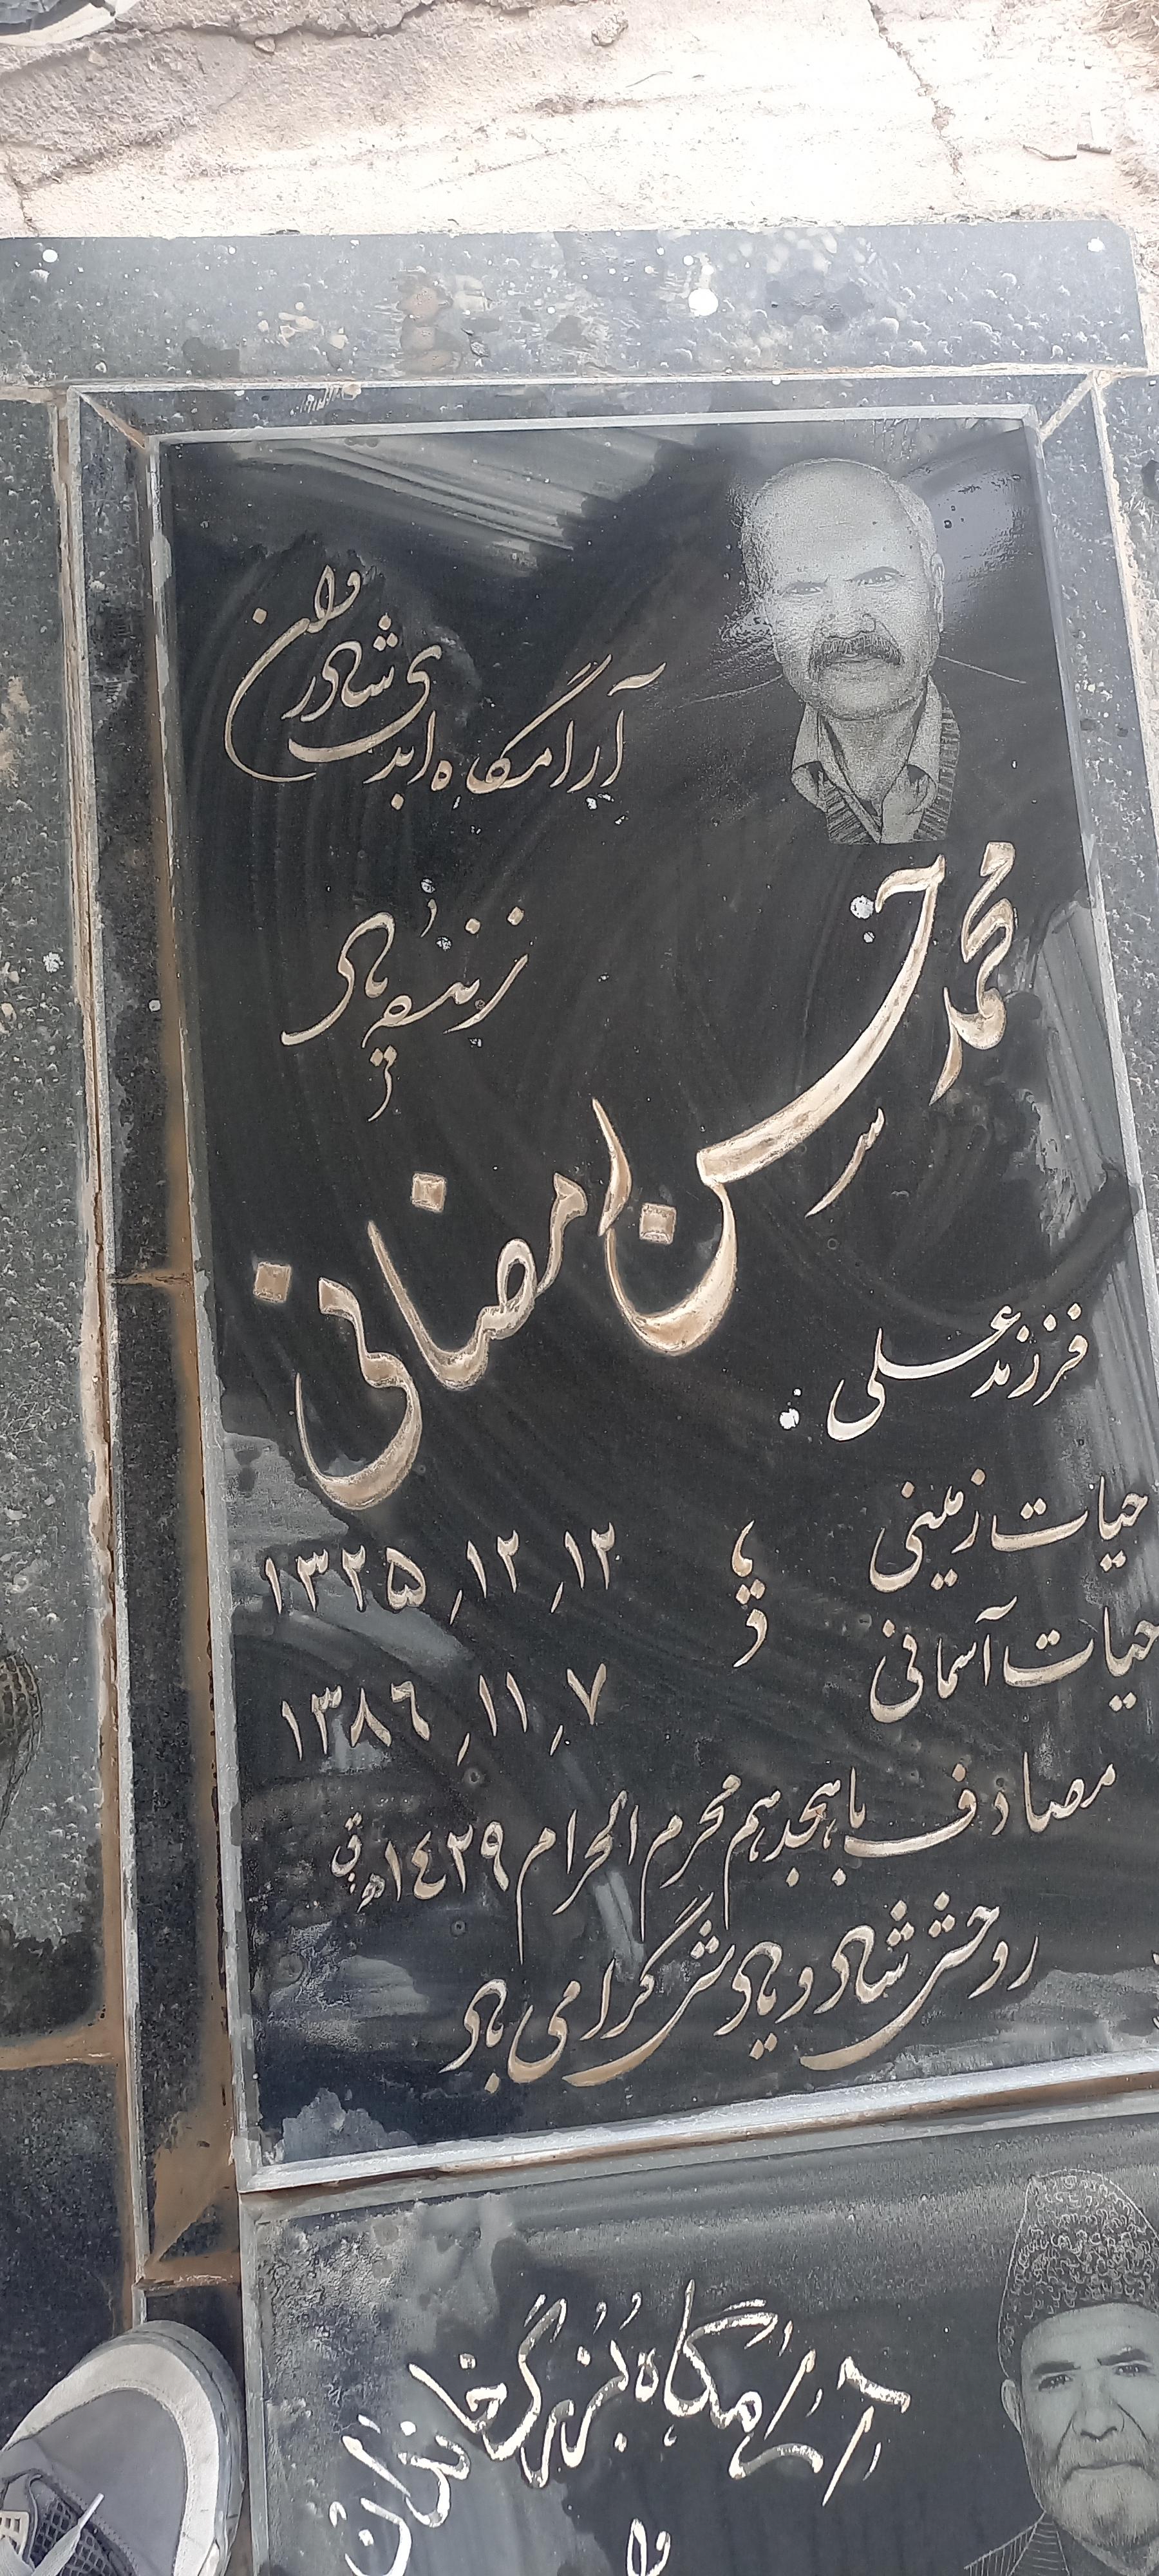 آرامگاه ابدی شادروان
زنده یاد
محمد حسن رمضانی
فرزند علی
حیات زمینی ۱۲, ۱۲, ۱۳۲۵
حیات آسمانی ۷, ۱۱, ۱۳۸۶
مصادف با هجدهم محرم الحرام ۱۴۲۹ ه ق
روحش شاد و یادش گرامی باد
آرامگاه بزرگ خاندان